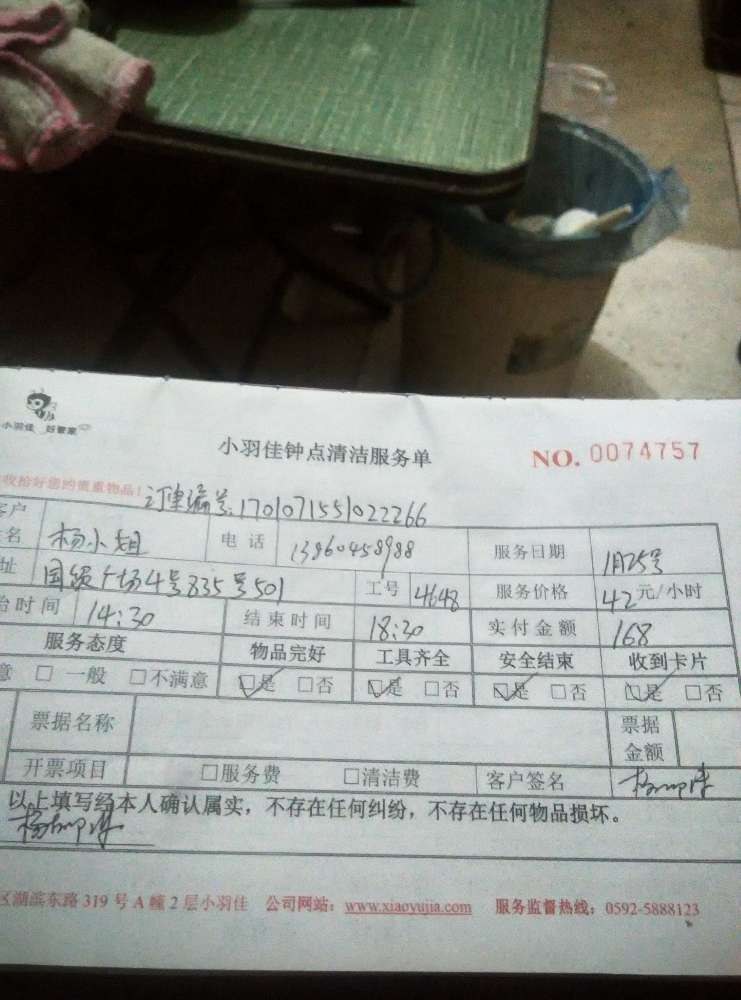 小羽佳 好管家
小羽佳钟点清洁服务单 NO. 0074757
收拾好您的贵重物品! 订单编号:1701071551022266
客户 杨小姐 电话 13860458988 服务日期 1月25号
址 国级广场4号835号501 工号 4648 服务价格 42元/小时
始时间 14:30 结束时间 18:30 实付金额 168
服务态度 物品完好 工具齐全 安全结束 收到卡片
意 □ 一般 □不满意 ☑是 □否 ☑是 □否 ☑是 □否 ☑是 □否
票据名称 票据金额
开票项目 □服务费 □清洁费 客户签名
以上填写经本人确认属实,不存在任何纠纷,不存在任何物品损坏。
区湖滨东路 319 号 A 幢 2 层小羽佳 公司网站:www.xiaoyujia.com 服务监督热线:0592-5888123